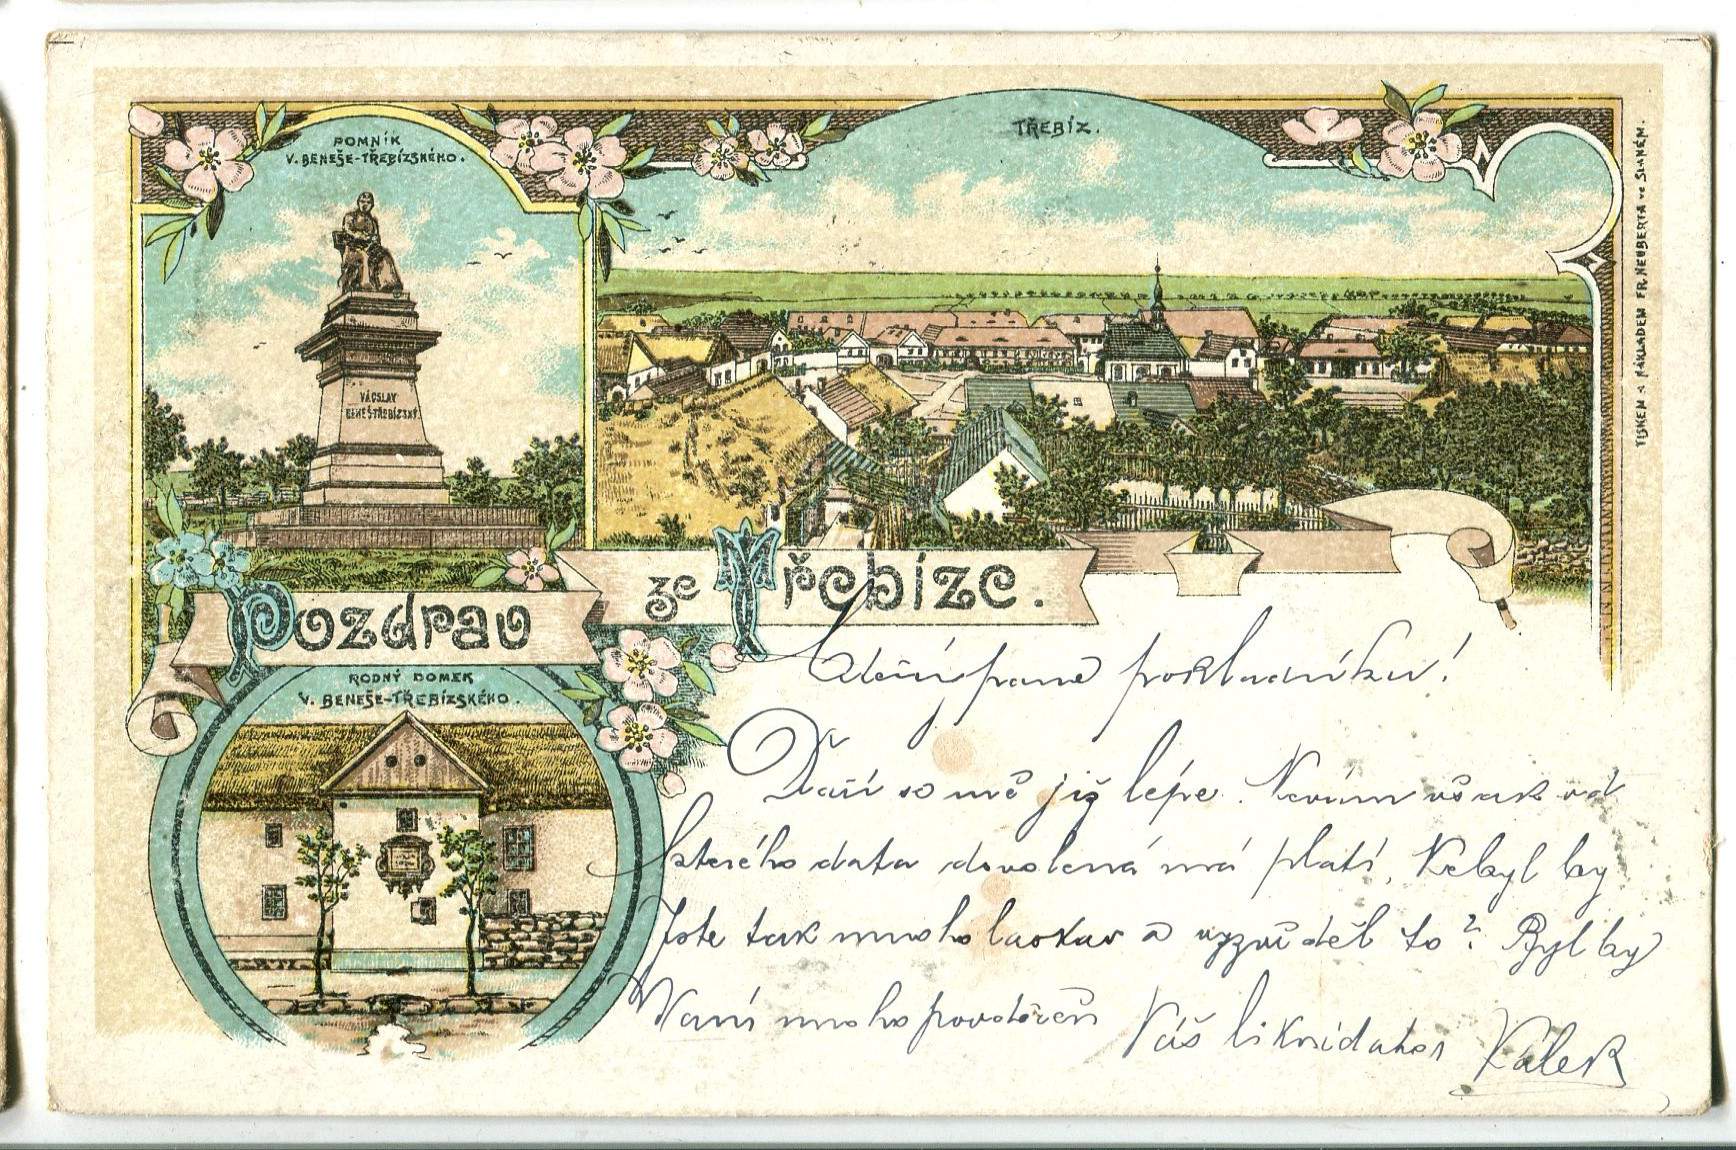 POMNÍK
V. BENEŠE-TŘEBÍZSKÉHO.
TŘEBÍZ.
TISKEM A NÁKLADEM FR. NEUBERTA VE SLANÉM.
VÁCSLAV
BENEŠ-TŘEBÍZSKÝ
Pozdrav ze Třebíze.
RODNÝ DOMEK
V. BENEŠE-TŘEBÍZSKÉHO.
Ctěný pane pokladníku!
Daří se mě již lépe. Nevím však od
kterého data dovolená má platí. Nebyl by
jste tak mnoho laskav a vyzvěděl to? Byl by
Vám mnoho povděčen Váš likvidator Kálek